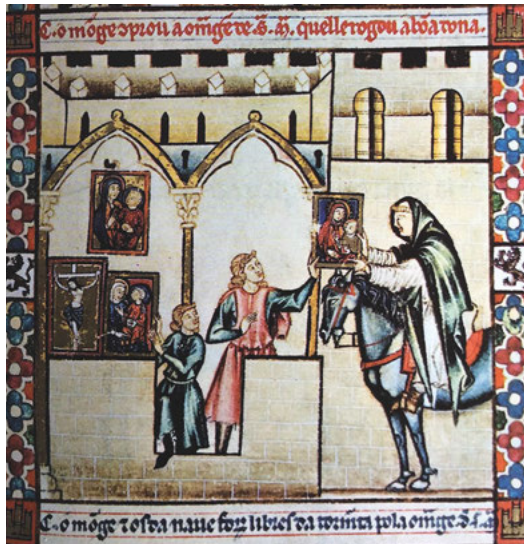 C.o mõge cõprou a omagẽ de S. M. quelle rogou a bõa dona.
C.o mõge ⁊ os da naue forõ libres da tormẽta pola omagẽ d. S. M.